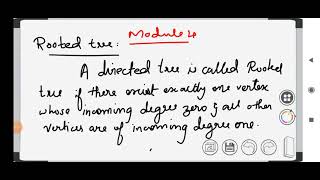 Module 4
Rooted tree:
A directed tree is called Rooted
tree if there exist exactly one vertex
whose incoming degree zero & all other
vertices are of incoming degree one.